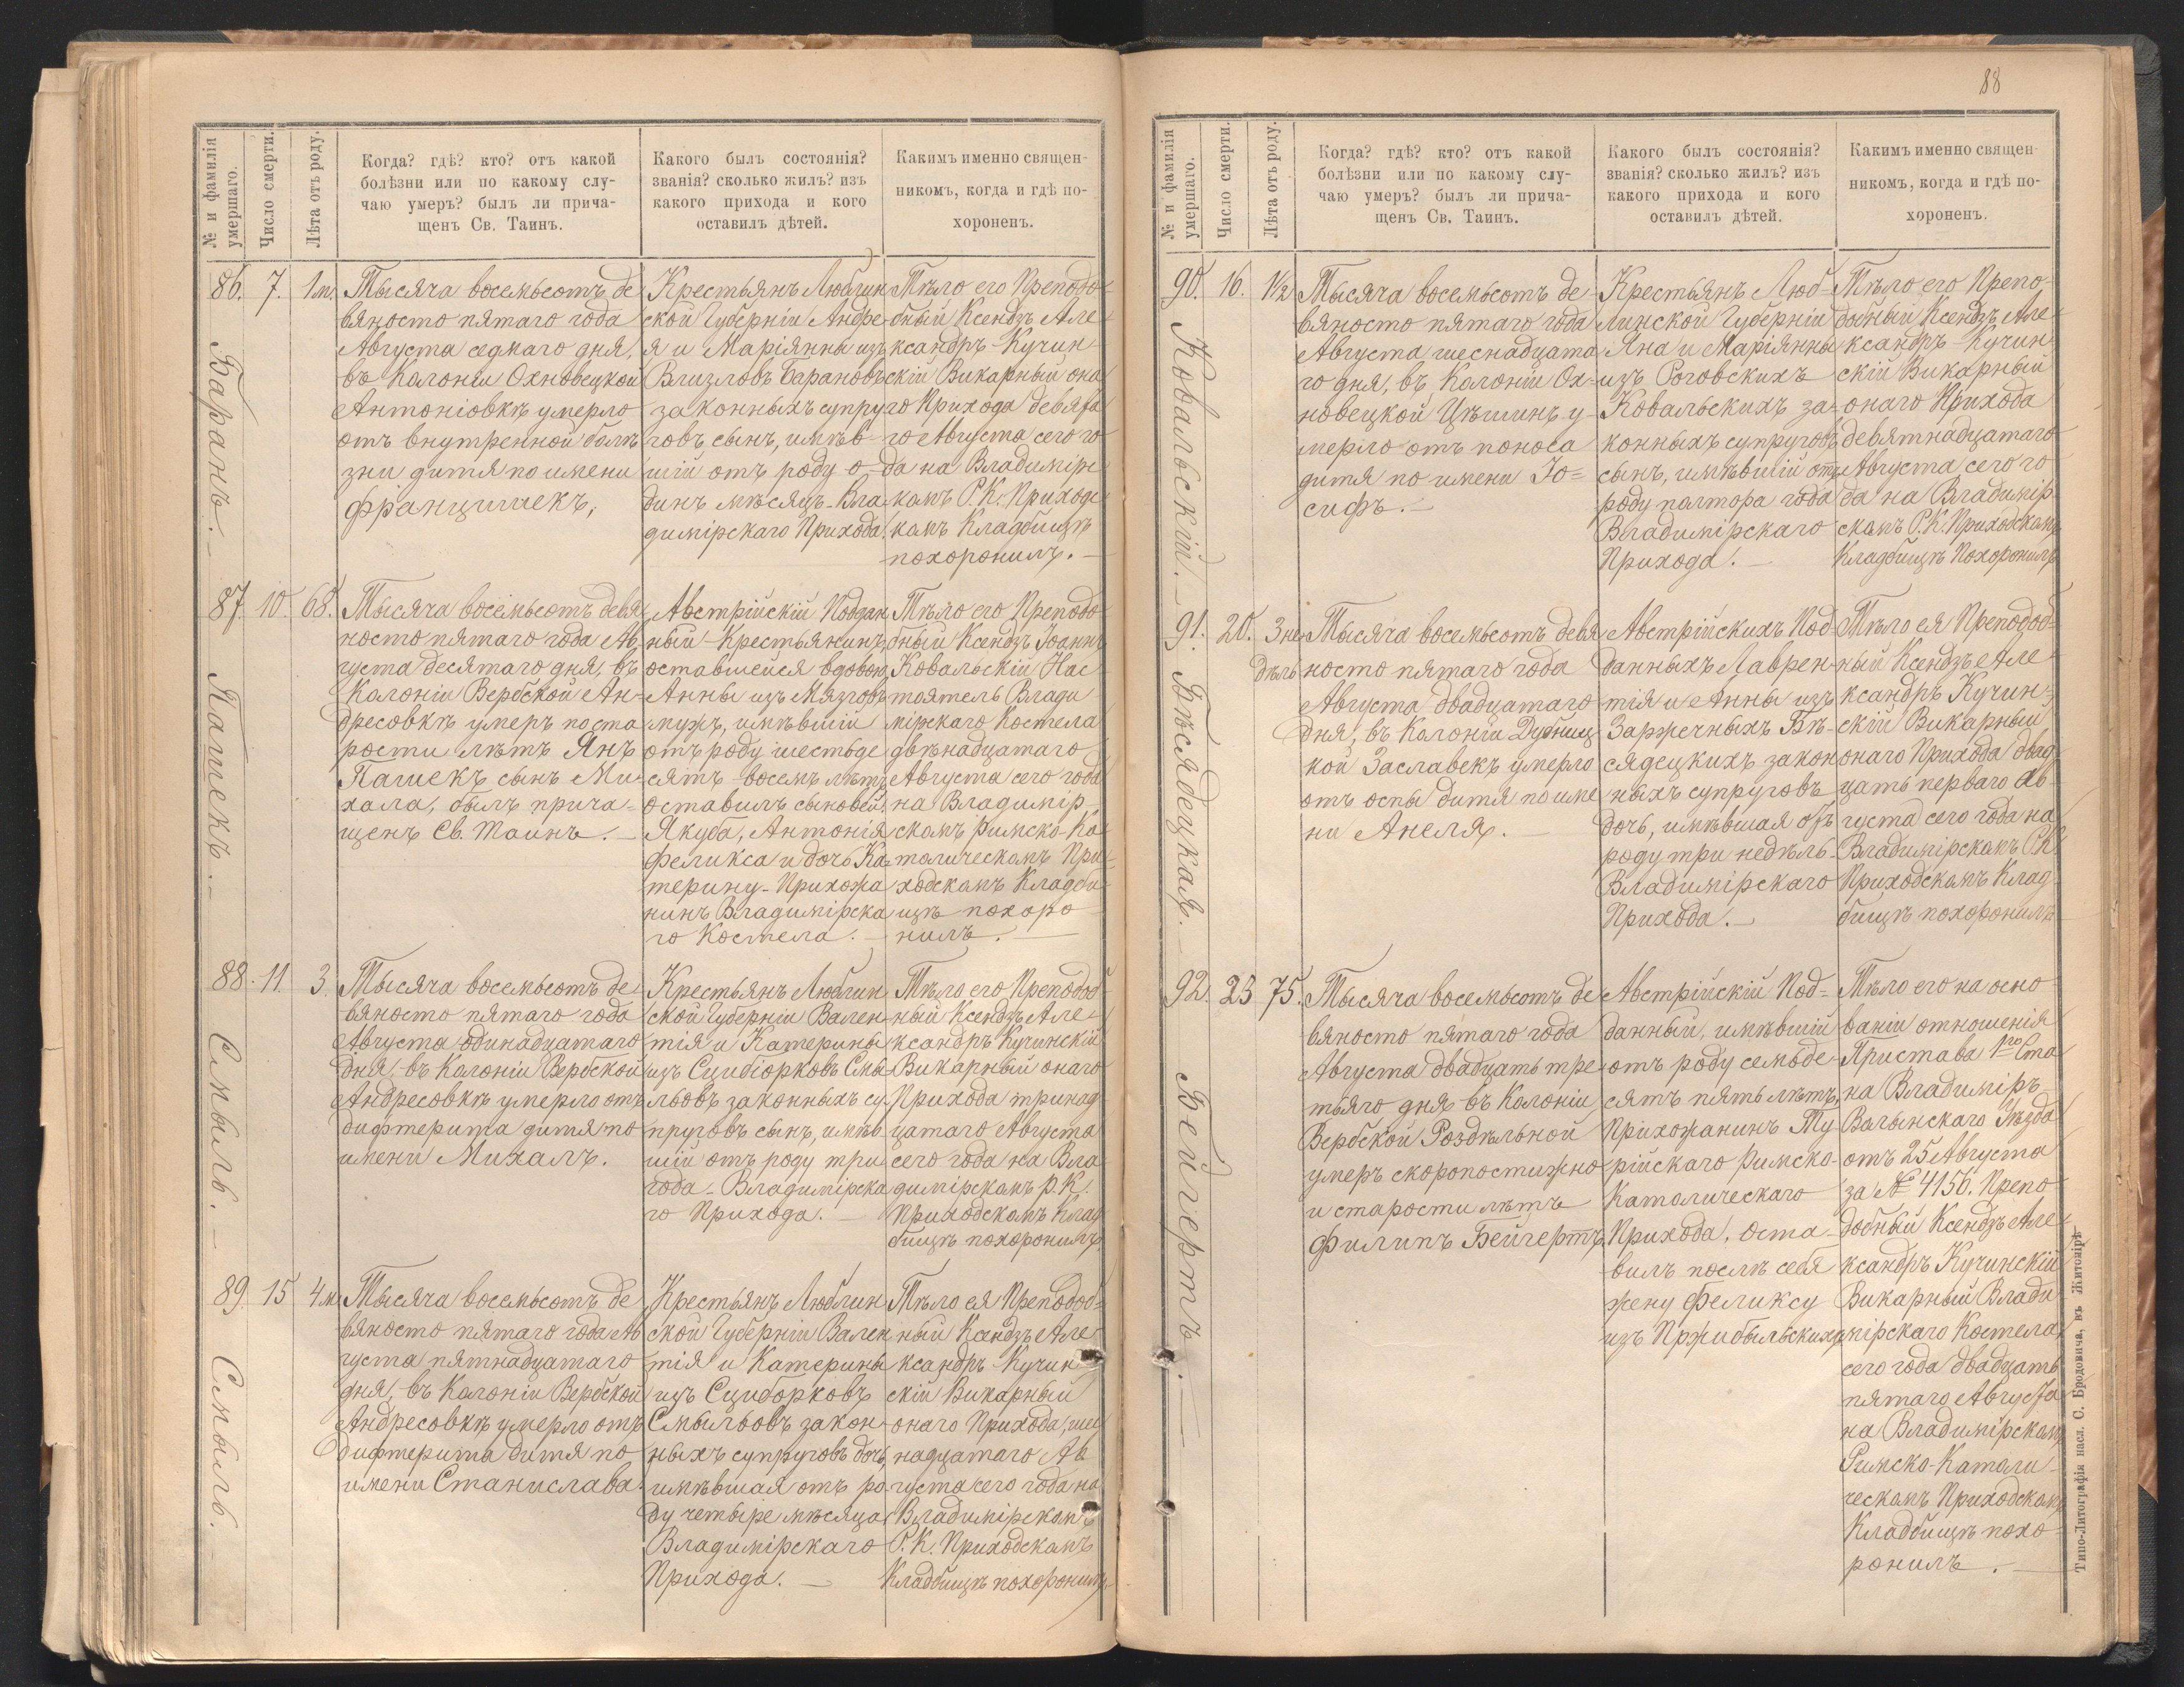 88
№ и фамилія умершаго.
Число смерти.
Лѣта отъ роду.
Когда? гдѣ? кто? отъ какой
болѣзни или по какому слу-
чаю умеръ? былъ ли прича-
щенъ Св. Таинъ.
Какого былъ состоянія?
званія? сколько жилъ? изъ
какого прихода и кого
оставилъ дѣтей.
Какимъ именно священ-
никомъ, когда и гдѣ по-
хороненъ.
86.
Баранъ.
7.
1 м.
Тысяча восемьсотъ де
вяносто пятаго года
Августа седмаго дня,
въ Колоніи Охновецкой
Антоніовкѣ умерло
отъ внутренной болѣ
зни дитя по имени
Францишекъ,
Крестьянъ Люблин
ской Губерніи Андре-
я и Маріянны изъ
Близловъ Барановъ
законныхъ супру
говъ, сынъ, имѣв-
шій отъ роду о-
динъ мѣсяцъ-Вла
димірскаго Прихода.
Тѣло его Преподо
бный Ксендзъ Але
ксандръ Кучин
скій Викарный она
го Прихода девята
го Августа сего го
да на Владимірс
комъ Р. К. Приходс
комъ Кладбищѣ
похоронилъ.
87.
Пашекъ.
10.
68.
Тысяча восемьсотъ девя
носто пятаго года Ав
густа десятаго дня, въ
Колоніи Вербской Ан-
дресовкѣ умеръ по ста
рости лѣтъ Янъ
Пашекъ сынъ Ми-
хала, былъ прича-
щенъ Св. Таинъ.
Австрійскій Поддан
ный-Крестьянинъ,
оставшейся вдовою
Анны изъ Мязговъ
мужъ, имѣвшій
отъ роду шестьде
сятъ восемь лѣтъ
Оставилъ сыновей
Якуба, Антонія
Феликса и дочь Ка-
терину-Прихожа
нинъ Владимірска
го Костела.
Тѣло его Преподо
бный Ксендзъ Іоаннъ
Ковальскій Нас
тоятель Влади
мірскаго Костела
двѣнадцатаго
Августа сего года
на Владимір-
скомъ Римско-Ка
толическомъ При
ходскомъ Кладби
щѣ похоро
нилъ.
88.
Смыль.
11.
3.
Тысяча восемьсотъ де
вяносто пятаго года
Августа одинадцатаго
дня, въ Колоніи Вербской
Андресовкѣ умерло отъ
дифтерита дитя по
имени Михалъ.
Крестьянъ Люблин
ской Губерніи Вален
тія и Катерины
изъ Сцибіорковъ Смы
льовъ законныхъ су
пруговъ сынъ, имѣв
шій отъ роду три
года-Владимірска
го Прихода.
Тѣло его Преподоб
ный Ксендзъ Але
ксандръ Кучинскій
Викарный онаго
Прихода тринад
цатаго Августа
сего года на Вла
димірскомъ Р. К.
Приходскомъ Клад
бищѣ похоронилъ.
89.
Смыль.
15
4 м.
Тысяча восемьсотъ де
вяносто пятаго года Ав
густа пятнадцатаго
дня, въ Колоніи Вербской
Андресовкѣ умерло отъ
дифтерита дитя по
имени Станислава.
Крестьянъ Люблин
ской Губерніи Вален
тія и Катерины
изъ Сциборковъ
Смыльовъ закон-
ныхъ супруговъ дочь,
имѣвшая отъ ро
ду четыре мѣсяца
Владимірскаго
Прихода.
Тѣло ея Преподоб-
ный Ксендзъ Але
ксандръ Кучин
скій Викарный
онаго Прихода, шес
надцатаго Ав
густа сего года на
Владимірскомъ
Р. К. Приходскомъ
Кладбищѣ похоронилъ.
№ и фамилія умершаго.
Число смерти.
Лѣта отъ роду.
Когда? гдѣ? кто? отъ какой
болѣзни или по какому слу-
чаю умеръ? былъ ли прича-
щенъ Св. Таинъ.
Какого былъ состоянія?
званія? сколько жилъ? изъ
какого прихода и кого
оставилъ дѣтей.
Какимъ именно священ-
никомъ, когда и гдѣ по-
хороненъ.
90.
Ковальскій.
16.
1½
Тысяча восемьсотъ де-
вяносто пятаго года
Августа шеснадцата
го дня, въ Колоніи Ох-
новецкой Цѣшинъ у-
мерло отъ поноса
дитя по имени Іо=
сифъ.
Крестьянъ Люб-
линской Губерніи
Яна и Маріянны
изъ Роговскихъ
Ковальскихъ за-
конныхъ супруговъ
сынъ, имѣвшій отъ
роду полтора года
Владимірскаго
Прихода.
Тѣло его Препо-
добный Ксендзъ Але
ксандръ Кучин
скій Викарный
онаго Прихода
девятнадцатаго
Августа сего го
да на Владимір
скомъ Р. К. Приходскомъ
Кладбищѣ Похоронилъ
91.
Бѣсядецкая.
20.
3 не
дѣль
Тысяча восемьсотъ девя
носто пятаго года
Августа двадцатаго
дня, въ Колоніи Дубниц
кой Заславекъ умерло
отъ оспы дитя по име
ни Анеля.
Австрійскихъ Под-
данныхъ Лаврен-
тія и Анны изъ
Заржечныхъ Бѣ-
сядецкихъ закон
ныхъ супруговъ
дочь, имѣвшая отъ
роду три недѣль-
Владимірскаго
Прихода.
Тѣло ея Преподоб=
ный Ксендзъ Але
ксандръ Кучин-
скій Викарный
онаго Прихода двад
цать перваго Ав
густа сего года на
Владимірскомъ Р. К.
Приходскомъ Клад
бищѣ похоронилъ
92.
Бейгертъ.
23
75.
Тысяча восемьсотъ де
вяносто пятаго года
Августа двадцать тре
тьяго дня въ Колоніи
Вербской Роздѣльной
умеръ скоропостижно
и старости лѣтъ
Филипъ Бейгертъ,
Австрійскій Под=
данный, имѣвшій
отъ роду семьде-
сятъ пять лѣтъ,
Прихожанинъ Ту
рійскаго Римско-
Католическаго
Прихода, Оста-
вилъ послѣ себя
жену Феликсу
изъ Пржибыльскихъ
Тѣло его на осно
ваніи отношенія
Пристава 1го Ста
на Владиміръ
Волынскаго Уѣзда
отъ 25 Августа
за № 4156. Препо
добный Ксендзъ Але
ксандръ Кучинскій
Викарный Влади
мірскаго Костела
сего года двадцать
пятаго Августа
на Владимірскомъ
Римско-Католи-
ческомъ Приходскомъ
Кладбищѣ похо-
ронилъ.
Типо-Литографія насл. С. Бродовича, въ Житомірѣ